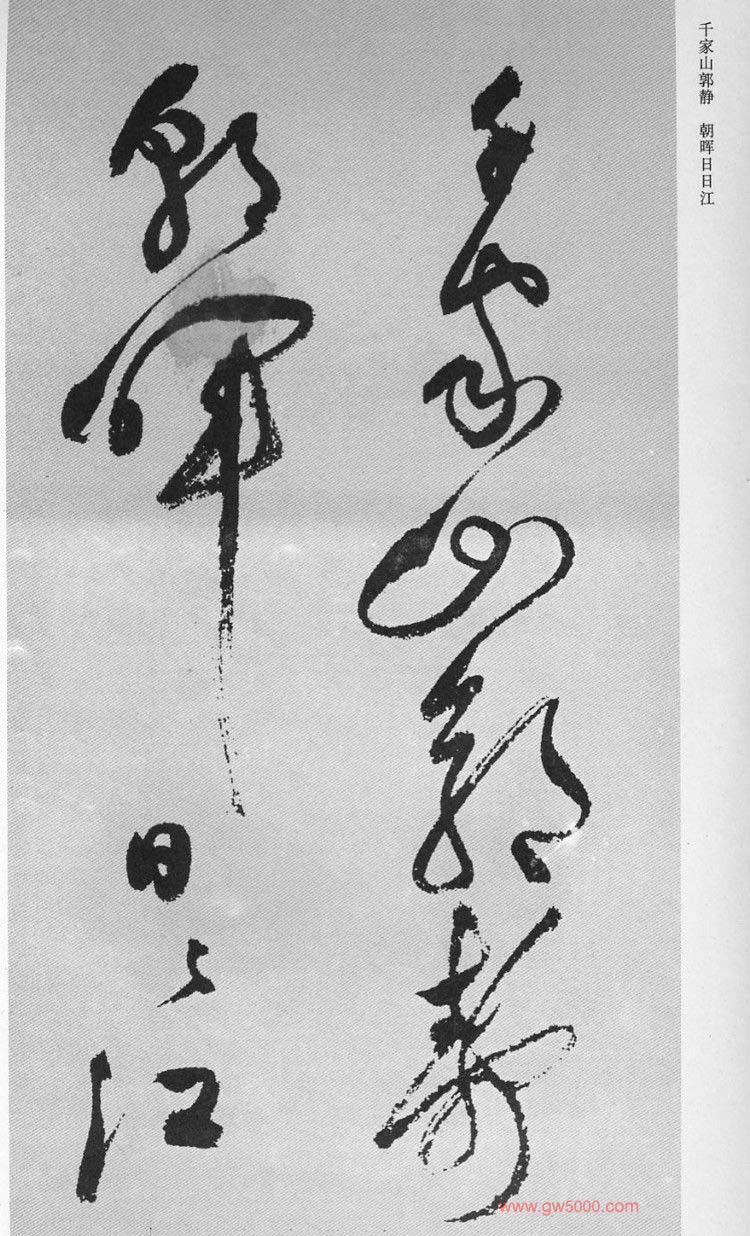 千家山郭静 朝晖日日江
千家山郭静
朝晖日〻江
www.gw5000.com